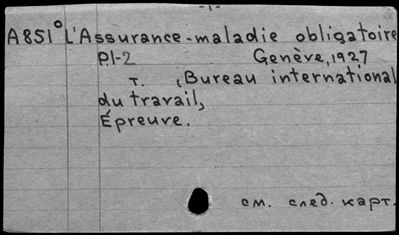 -1-
A851° L'Assurance-maladie obligatoire
Pl-2 Genève, 1927
т. , Bureau international
du travail,
Épreuve.
см. след. карт.